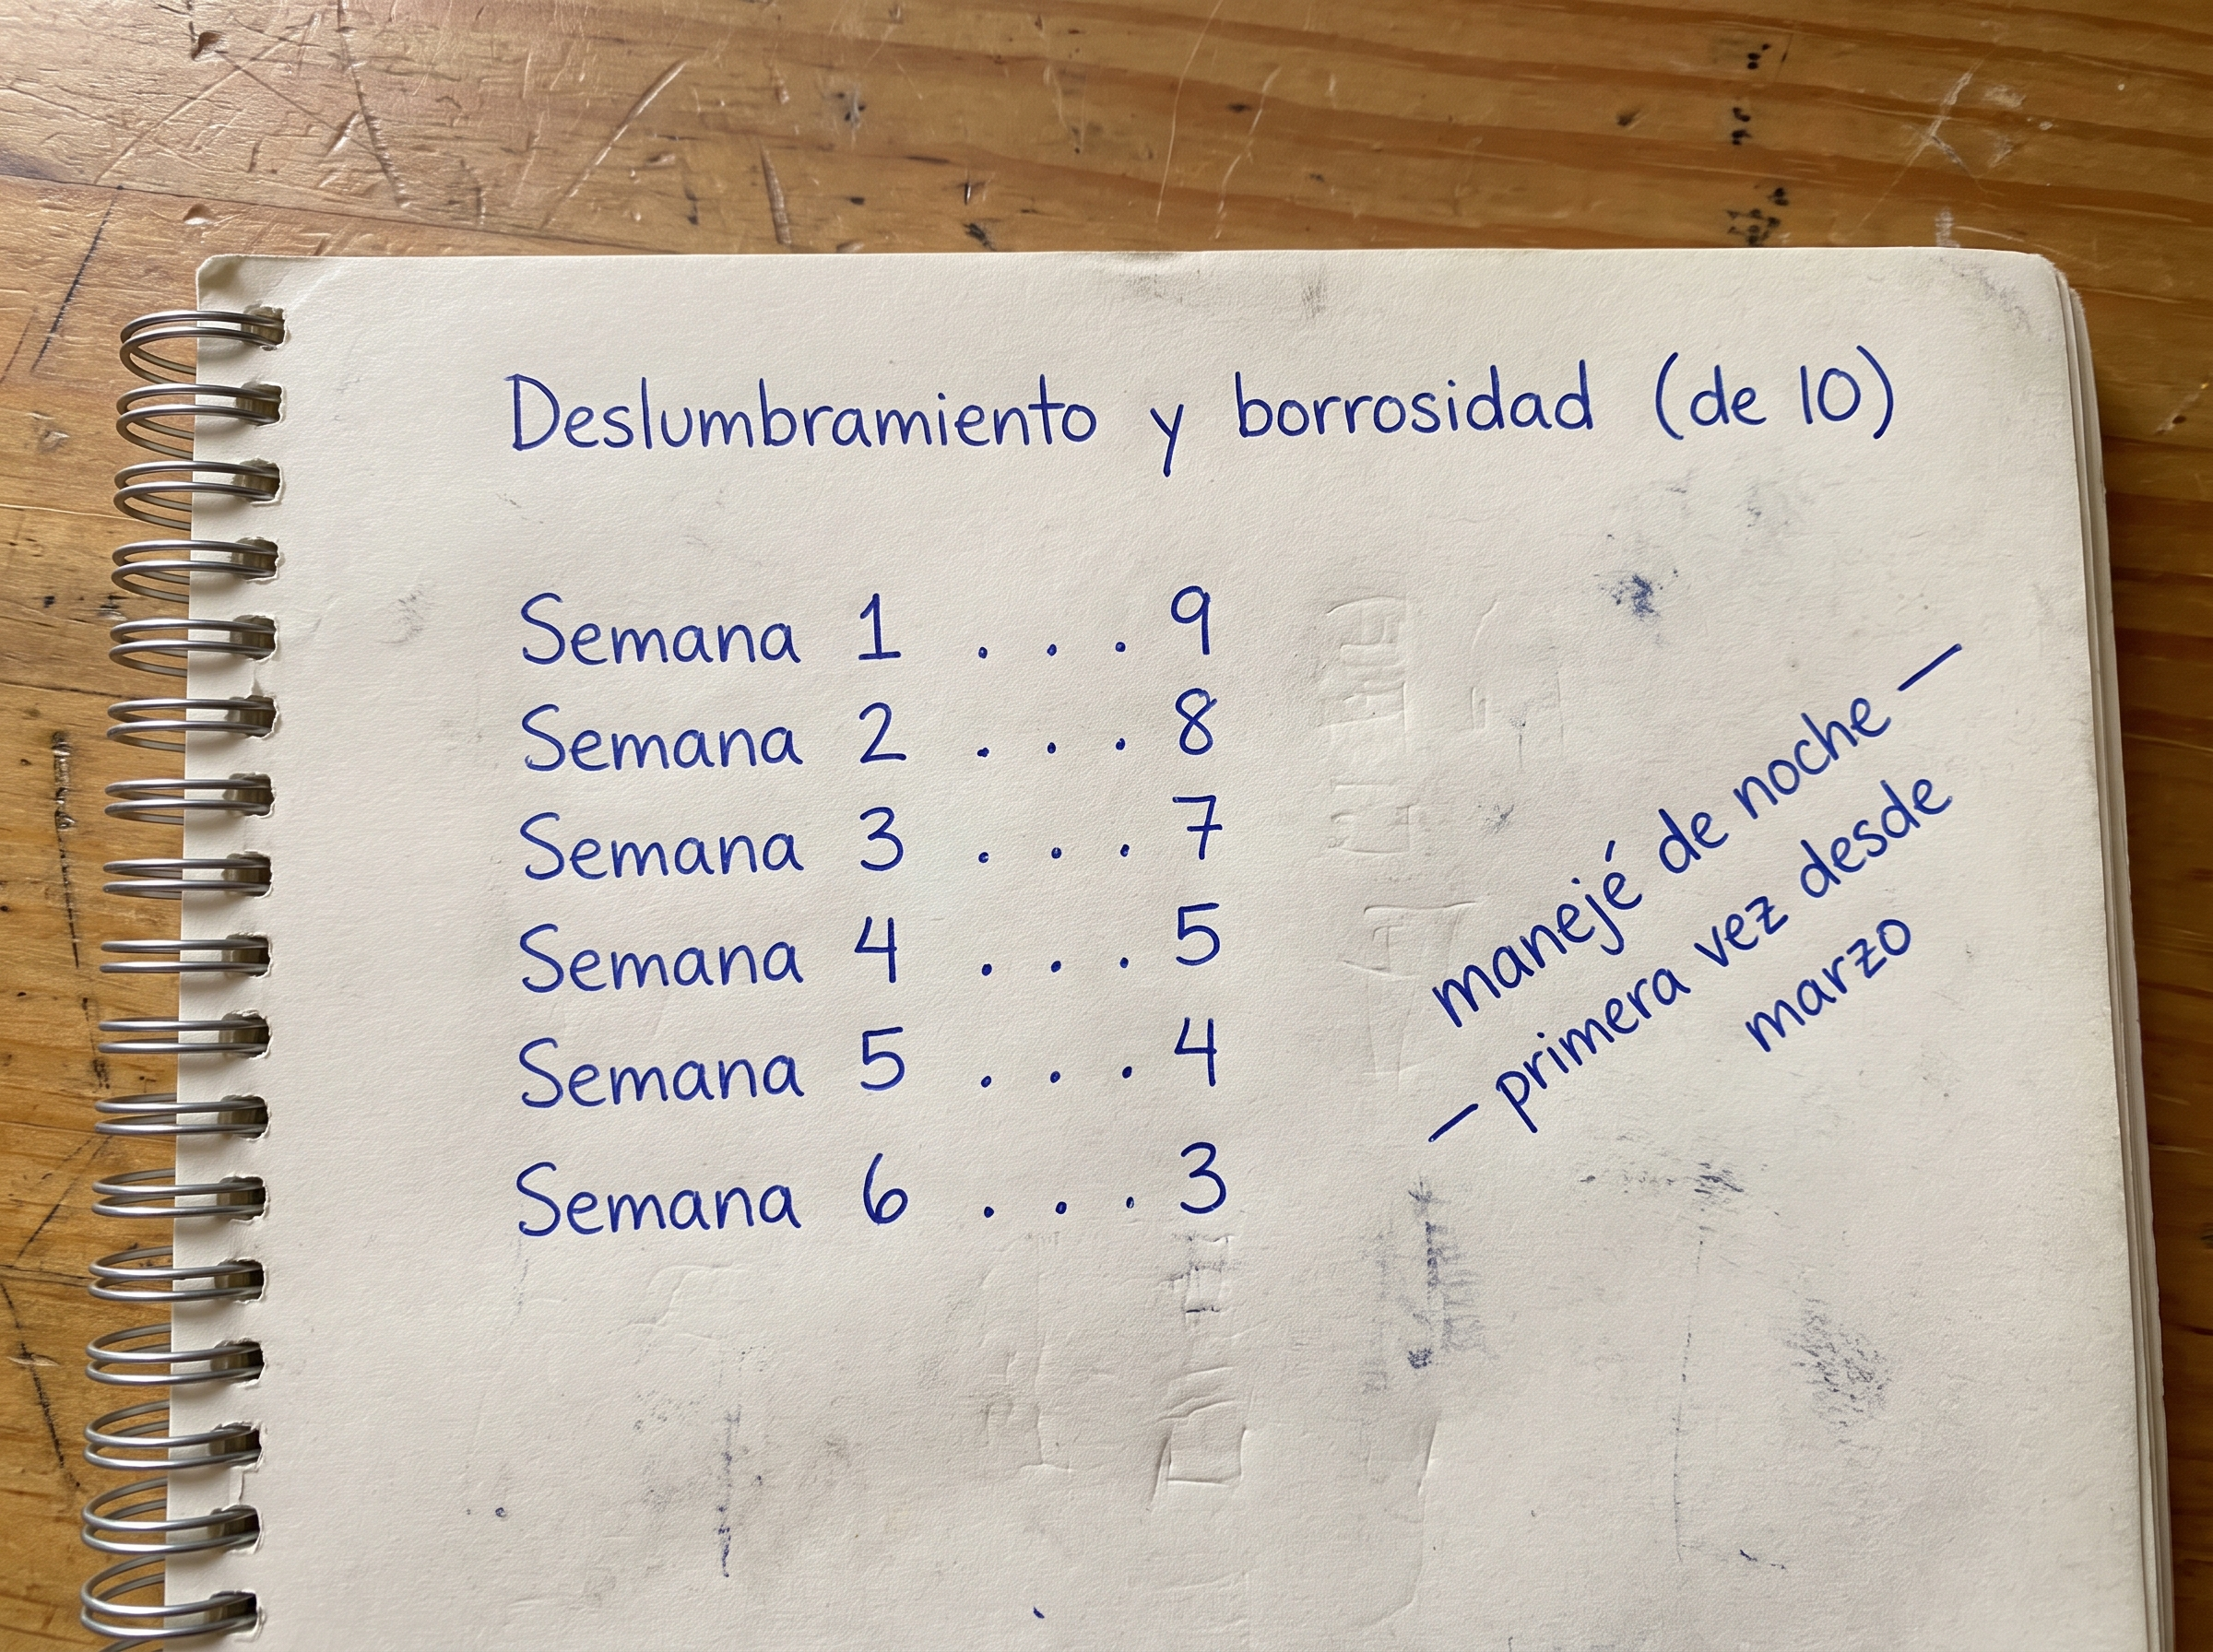 Deslumbramiento y borrosidad (de 10)
Semana 1 . . . 9
Semana 2 . . . 8
Semana 3 . . . 7
Semana 4 . . . 5
Semana 5 . . . 4
Semana 6 . . . 3
manejé de noche —
— primera vez desde
marzo